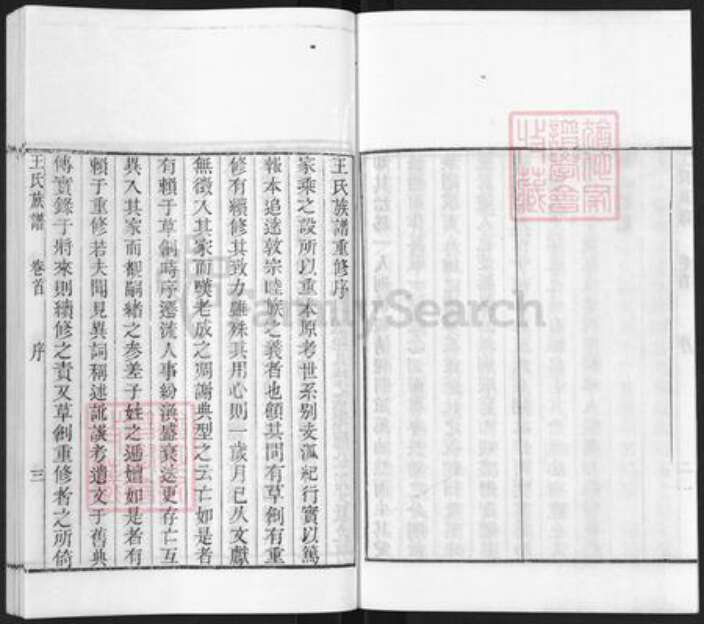 王氏族譜重修序
家乘之設所以重本原考世系別支派紀行實以篤
報本追遠敦宗睦族之義者也顧其間有草創有重
修有續修其致力雖殊其用心則一歲月已久文獻
無徵入其家而嘆老成之凋謝典型之云亡如是者
有賴于草創時序遷流人事紛淆盛衰迭更存亡互
異入其家而觀嗣緒之參差子姓之遞嬗如是者有
賴于重修若夫聞見異詞稱述訛談考遺文于舊典
傳實錄于將來則續修之責又草創重修者之所倚
王氏族譜 卷首 序 三
FamilySearch